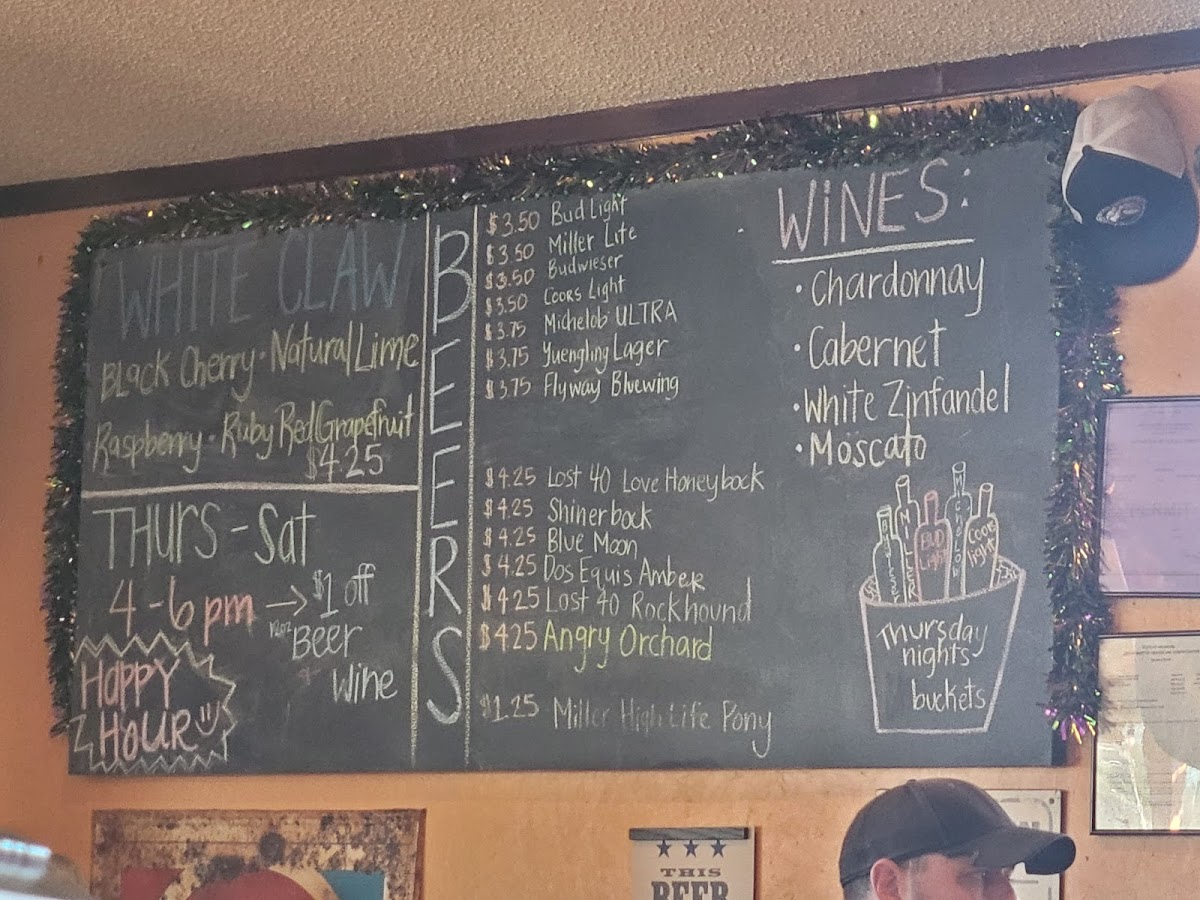 WHITE CLAW
Black Cherry · Natural Lime
Raspberry · Ruby Red Grapefruit
$4.25
THURS - Sat
4 - 6 pm → $1 off
12oz Beer
Wine
HAPPY
HOUR
BEERS
$3.50 Bud Light
$3.50 Miller Lite
$3.50 Budwieser
$3.50 Coors Light
$3.75 Michelob ULTRA
$3.75 Yuengling Lager
$3.75 Flyway Bluewing
$4.25 Lost 40 Love Honeybock
$4.25 Shinerbock
$4.25 Blue Moon
$4.25 Dos Equis Amber
$4.25 Lost 40 Rockhound
$4.25 Angry Orchard
$1.25 Miller High Life Pony
WINES:
· Chardonnay
· Cabernet
· White Zinfandel
· Moscato
MILLER
BUD
Light
COORS
light
Thursday
nights
buckets
THIS
BEER